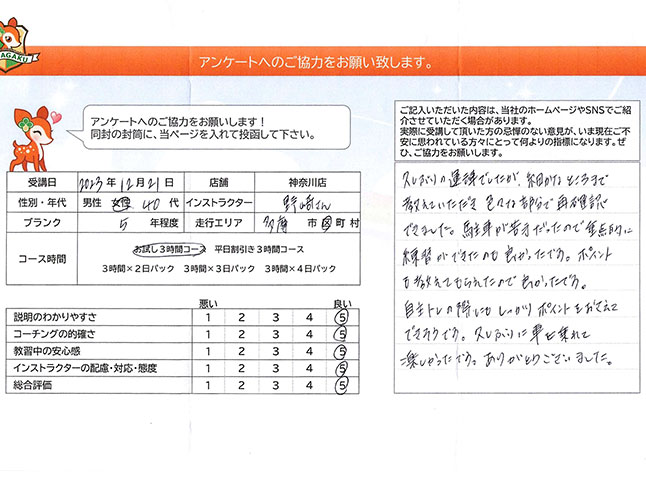 AGAKU
アンケートへのご協力をお願い致します。
アンケートへのご協力をお願いします！
同封の封筒に、当ページを入れて投函して下さい。
受講日 2023年 12月 21日 店舗 神奈川店
性別・年代 男性 女性 40代 インストラクター 野崎さん
ブランク 5 年程度 走行エリア 多摩 市 区 町 村
コース時間 お試し3時間コース 平日割引き3時間コース
3時間×2日パック 3時間×3日パック 3時間×4日パック
悪い 良い
説明のわかりやすさ 1 2 3 4 5
コーチングの的確さ 1 2 3 4 5
教習中の安心感 1 2 3 4 5
インストラクターの配慮・対応・態度 1 2 3 4 5
総合評価 1 2 3 4 5
ご記入いただいた内容は、当社のホームページやSNSでご紹
介させていただく場合があります。
実際に受講して頂いた方の忌憚のない意見が、いま現在ご不
安に思われている方々にとって何よりの指標になります。ぜ
ひ、ご協力をお願いします。
久しぶりの運転でしたが、細かなところまで
教えていただき 色々な部分で再確認が
できました。駐車が苦手だったので重点的に
練習ができたのも良かったです。ポイント
も教えてもらえたので良かったです。
自主トレの際にもしっかりポイントをおさえて
できそうです。久しぶりに車に乗れて
楽しかったです。ありがとうございました。